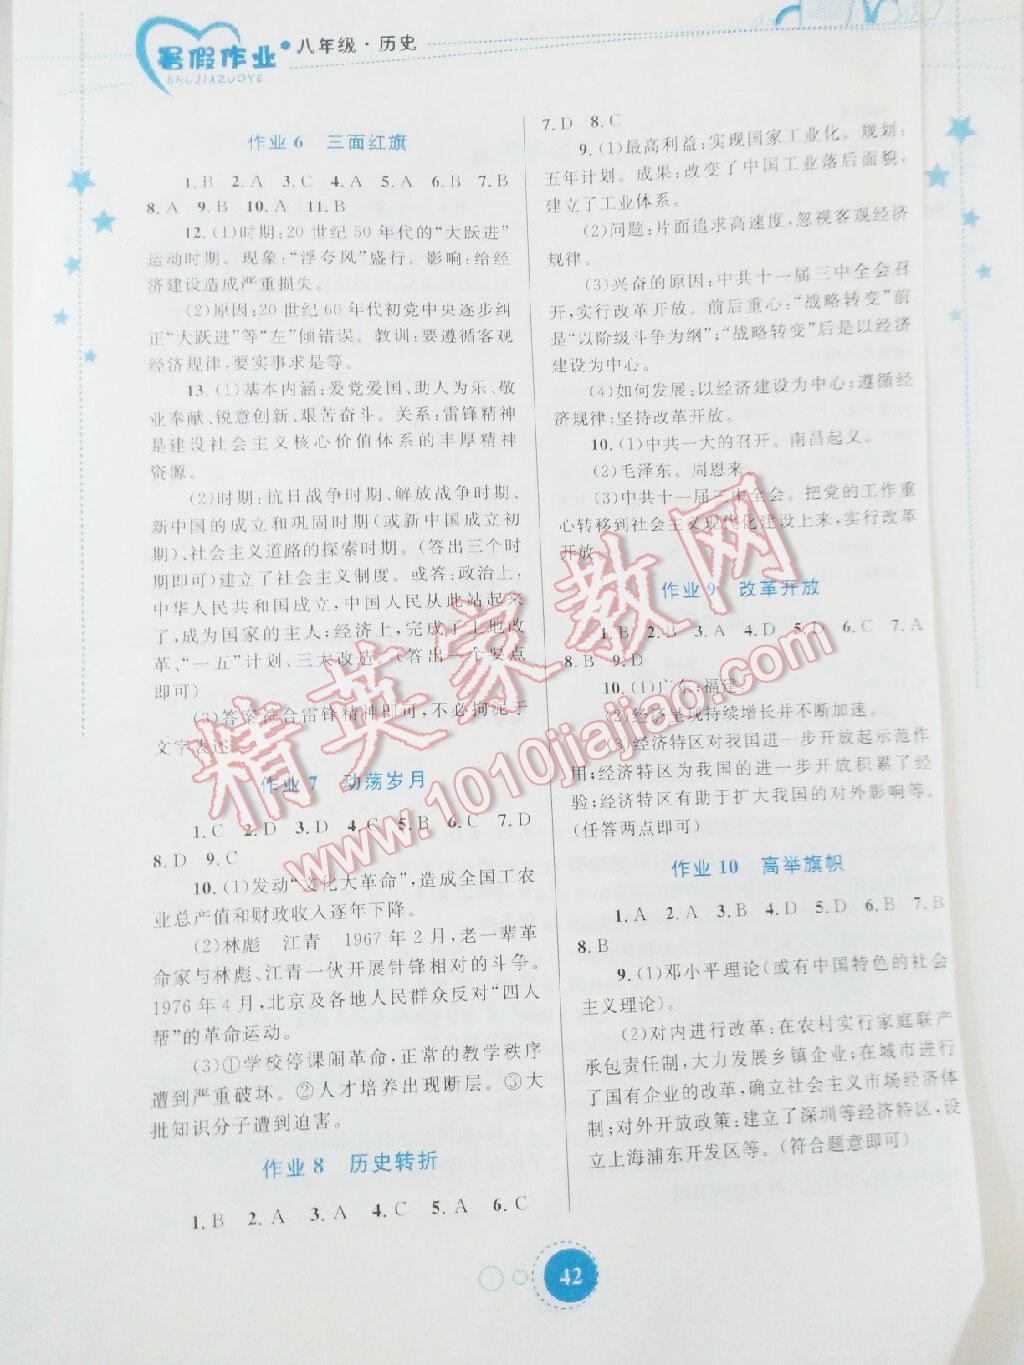 暑假作业
SHUJIAZUOYE
八年级·历史
作业6 三面红旗
1.B 2.A 3.C 4.A 5.A 6.B 7.B
8.A 9.B 10.A 11.B
12.(1)时期:20世纪50年代的“大跃进”
运动时期。现象:“浮夸风”盛行。影响:给经
济建设造成严重损失。
(2)原因:20世纪60年代初党中央逐步纠
正“大跃进”等“左”倾错误。教训:要遵循客观
经济规律,要实事求是等。
13.(1)基本内涵:爱党爱国、助人为乐、敬
业奉献、锐意创新、艰苦奋斗。关系:雷锋精神
是建设社会主义核心价值体系的丰厚精神
资源。
(2)时期:抗日战争时期、解放战争时期、
新中国的成立和巩固时期(或新中国成立初
期)、社会主义道路的探索时期。(答出三个时
期即可)建立了社会主义制度。或答:政治上,
中华人民共和国成立,中国人民从此站起来
了,成为国家的主人;经济上,完成了土地改
革、“一五”计划、三大改造。(答出一个要点
即可)
(3)答案符合雷锋精神即可,不必拘泥于
文字表述。
作业7 动荡岁月
1.C 2.D 3.D 4.C 5.B 6.C 7.D
8.D 9.C
10.(1)发动“文化大革命”,造成全国工农
业总产值和财政收入逐年下降。
(2)林彪 江青 1967年2月,老一辈革
命家与林彪、江青一伙开展针锋相对的斗争。
1976年4月,北京及各地人民群众反对“四人
帮”的革命运动。
(3)①学校停课闹革命,正常的教学秩序
遭到严重破坏。②人才培养出现断层。③大
批知识分子遭到迫害。
作业8 历史转折
1.B 2.A 3.A 4.C 5.A 6.C
7.D 8.C
9.(1)最高利益:实现国家工业化。规划:
五年计划。成果:改变了中国工业落后面貌,
建立了工业体系。
(2)问题:片面追求高速度,忽视客观经济
规律。
(3)兴奋的原因:中共十一届三中全会召
开,实行改革开放。前后重心:“战略转变”前
是“以阶级斗争为纲”;“战略转变”后是以经济
建设为中心。
(4)如何发展:以经济建设为中心;遵循经
济规律;坚持改革开放。
10.(1)中共一大的召开。南昌起义。
(2)毛泽东。周恩来。
(3)中共十一届三中全会。把党的工作重
心转移到社会主义现代化建设上来,实行改革
开放。
作业9 改革开放
1.B 2.B 3.A 4.D 5.D 6.C 7.A
8.B 9.D
10.(1)广东;福建。
(2)经济呈现持续增长并不断加速。
(3)经济特区对我国进一步开放起示范作
用;经济特区为我国的进一步开放积累了经
验;经济特区有助于扩大我国的对外影响等。
(任答两点即可)
作业10 高举旗帜
1.A 2.A 3.B 4.D 5.D 6.B 7.B
8.B
9.(1)邓小平理论(或有中国特色的社会
主义理论)。
(2)对内进行改革:在农村实行家庭联产
承包责任制,大力发展乡镇企业;在城市进行
了国有企业的改革,确立社会主义市场经济体
制;对外开放政策:建立了深圳等经济特区,设
立上海浦东开发区等。(符合题意即可)
42
精英家教网
www.1010jiajiao.com